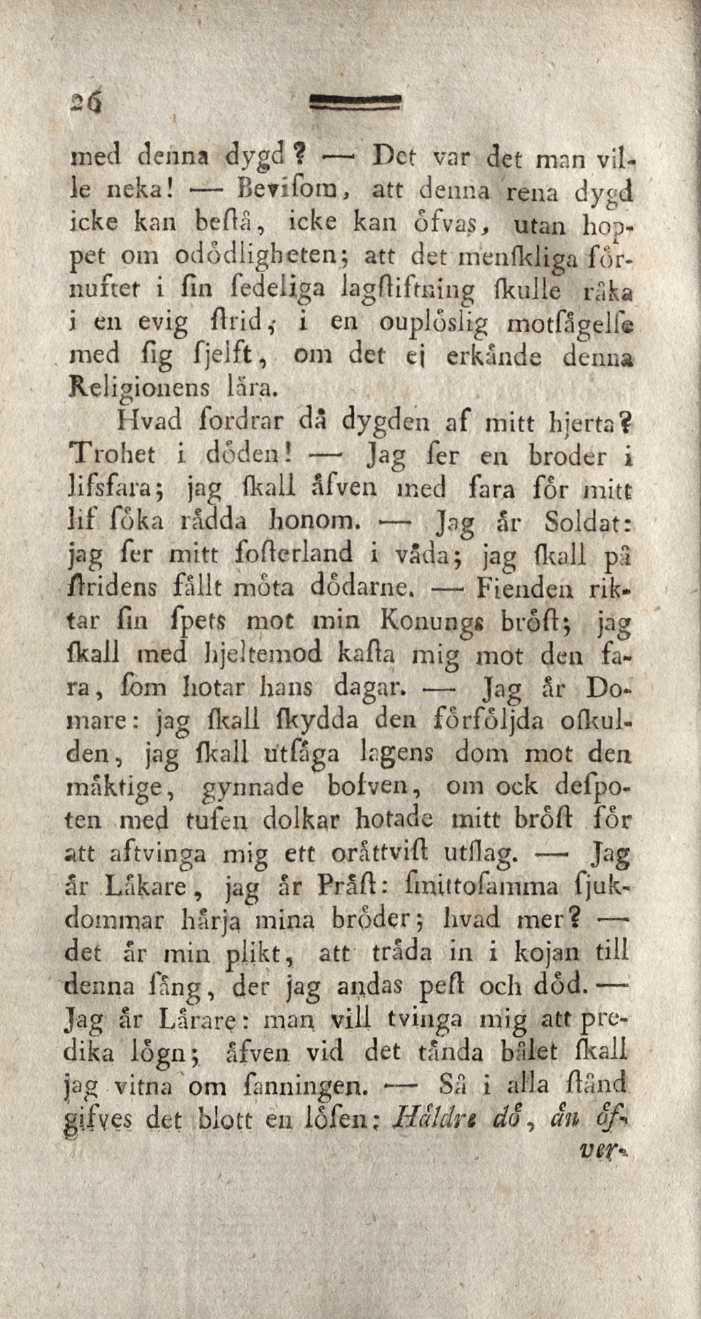 26
med denna dygd? — Det var det man vil-
le neka! — Beviſom, att denna rena dygd
icke kan beſtå, icke kan öfvas, utan hop-
pet om odödligheten; att det menſkliga för-
nuftet i ſin ſedeliga lagſtiftning ſkulle råka
i en evig ſtrid, i en ouplöslig motſågelſe
med ſig ſjelft, om det ej erkånde denna
Religionens låra.
Hvad fordrar då dygden af mitt hjerta?
Trohet i döden! — Jag ſer en broder i
lifsfara; jag ſkall åfven med fara för mitt
lif ſöka rådda honom. — Jag år Soldat:
jag ſer mitt foſterland i våda; jag ſkall på
ſtridens fållt möta dödarne. — Fienden rik-
tar ſin ſpets mot min Konungs bröſt; jag
ſkall med hjeltemod kaſta mig mot den fa-
ra, ſom hotar hans dagar. — Jag år Do-
mare: jag ſkall ſkydda den förföljda oſkul-
den, jag ſkall utſåga lagens dom mot den
måktige, gynnade bofven, om ock deſpo-
ten med tuſen dolkar hotade mitt bröſt för
att aftvinga mig ett oråttviſt utſlag. — Jag
år Låkare, jag år Pråſt: ſmittoſamma ſjuk-
dommar hårja mina bröder; hvad mer? —
det år min plikt, att tråda in i kojan till
denna ſång, der jag andas peſt och död. —
Jag år Lårare: man vill tvinga mig att pre-
dika lögn; åfven vid det tånda bålet ſkall
jag vitna om ſanningen. — Så i alla ſtånd
gifves det blott en löſen: Håldre dö, ån öf-
ver-